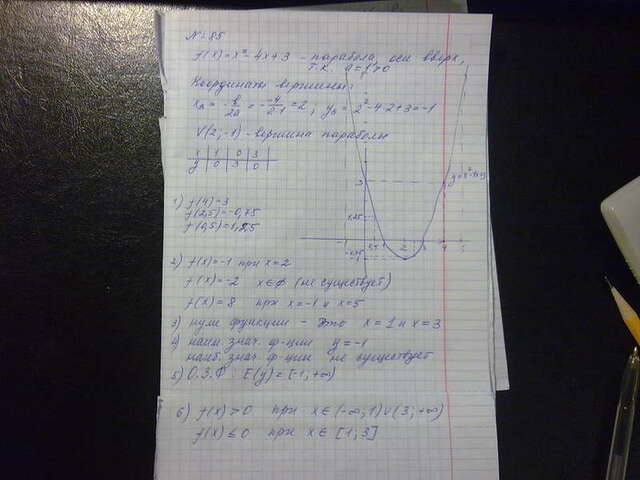 N=85
f(x)=x²-4x+3 - парабола, оси вверх,
т.к. a=1>0
Координаты вершины:
xв = -b/2a = -(-4)/2·1 = 2; yв = 2²-4·2+3=-1
V(2;-1) - вершина параболы
x | 1 | 0 | 3
y | 0 | 3 | 0
1) f(4)=3
f(2,5)=-0,75
f(0,5)=1,25
2) f(x)=-1 при x=2
f(x)=-2 x∈Ф (не существует)
f(x)=8 при x=-1 и x=5
3) нули функции - это x=1 и x=3
4) наим. знач. ф-ции y=-1
наиб. знач. ф-ции не существует
5) О.З.Ф: E(y)=[-1;+∞)
6) f(x)>0 при x∈(-∞;1)∪(3;+∞)
f(x)≤0 при x∈[1;3]
3
y=x²-4x+3
1,25
-1 0,5 1 2 3 4 5
-0,75
-1